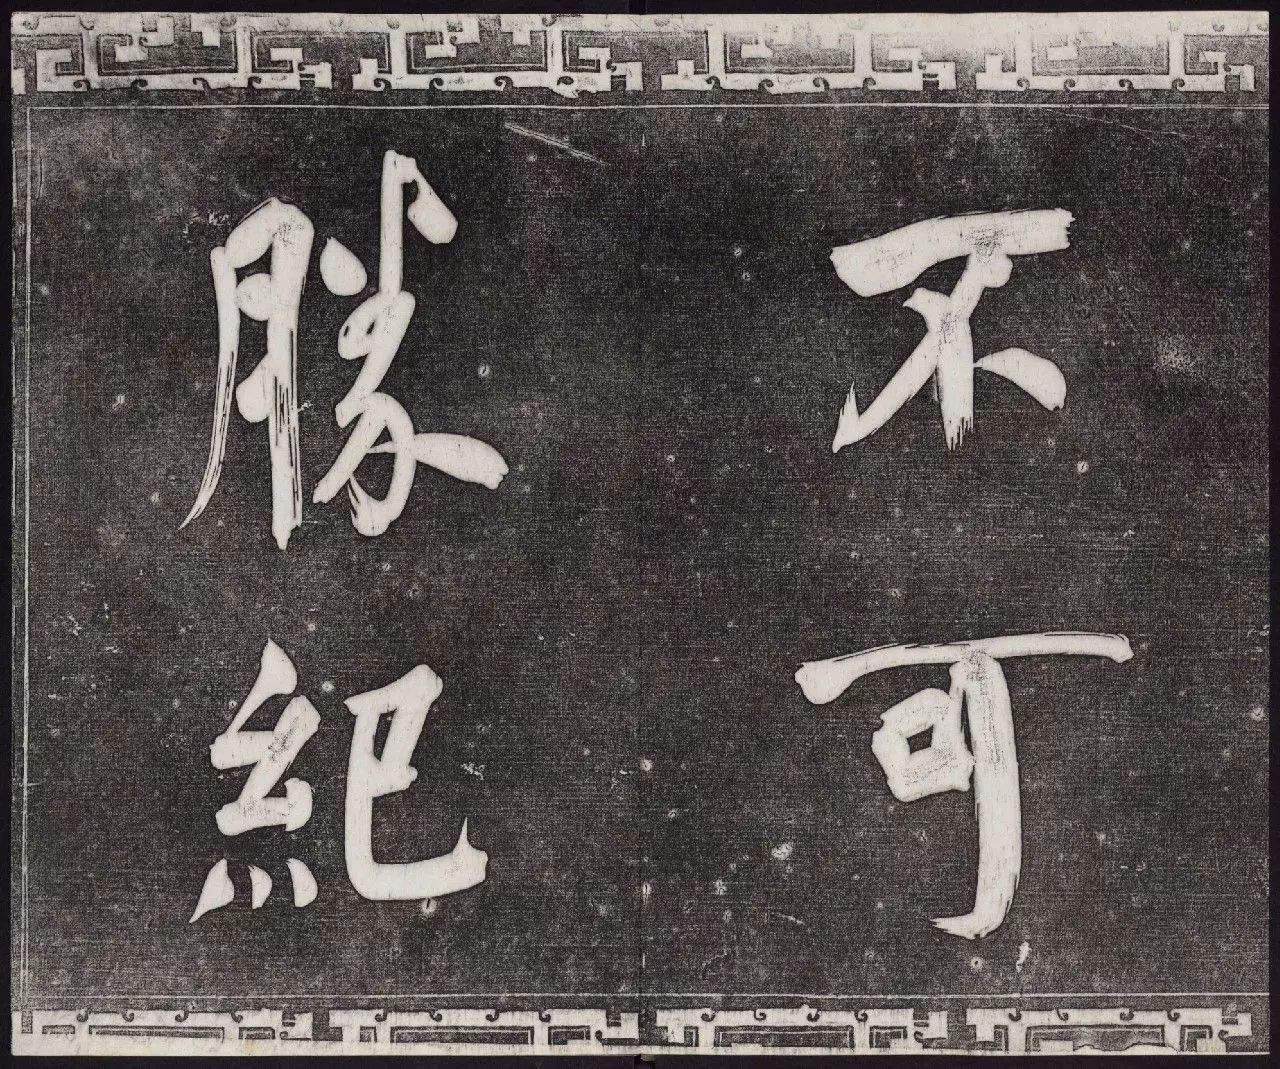 不可
勝紀